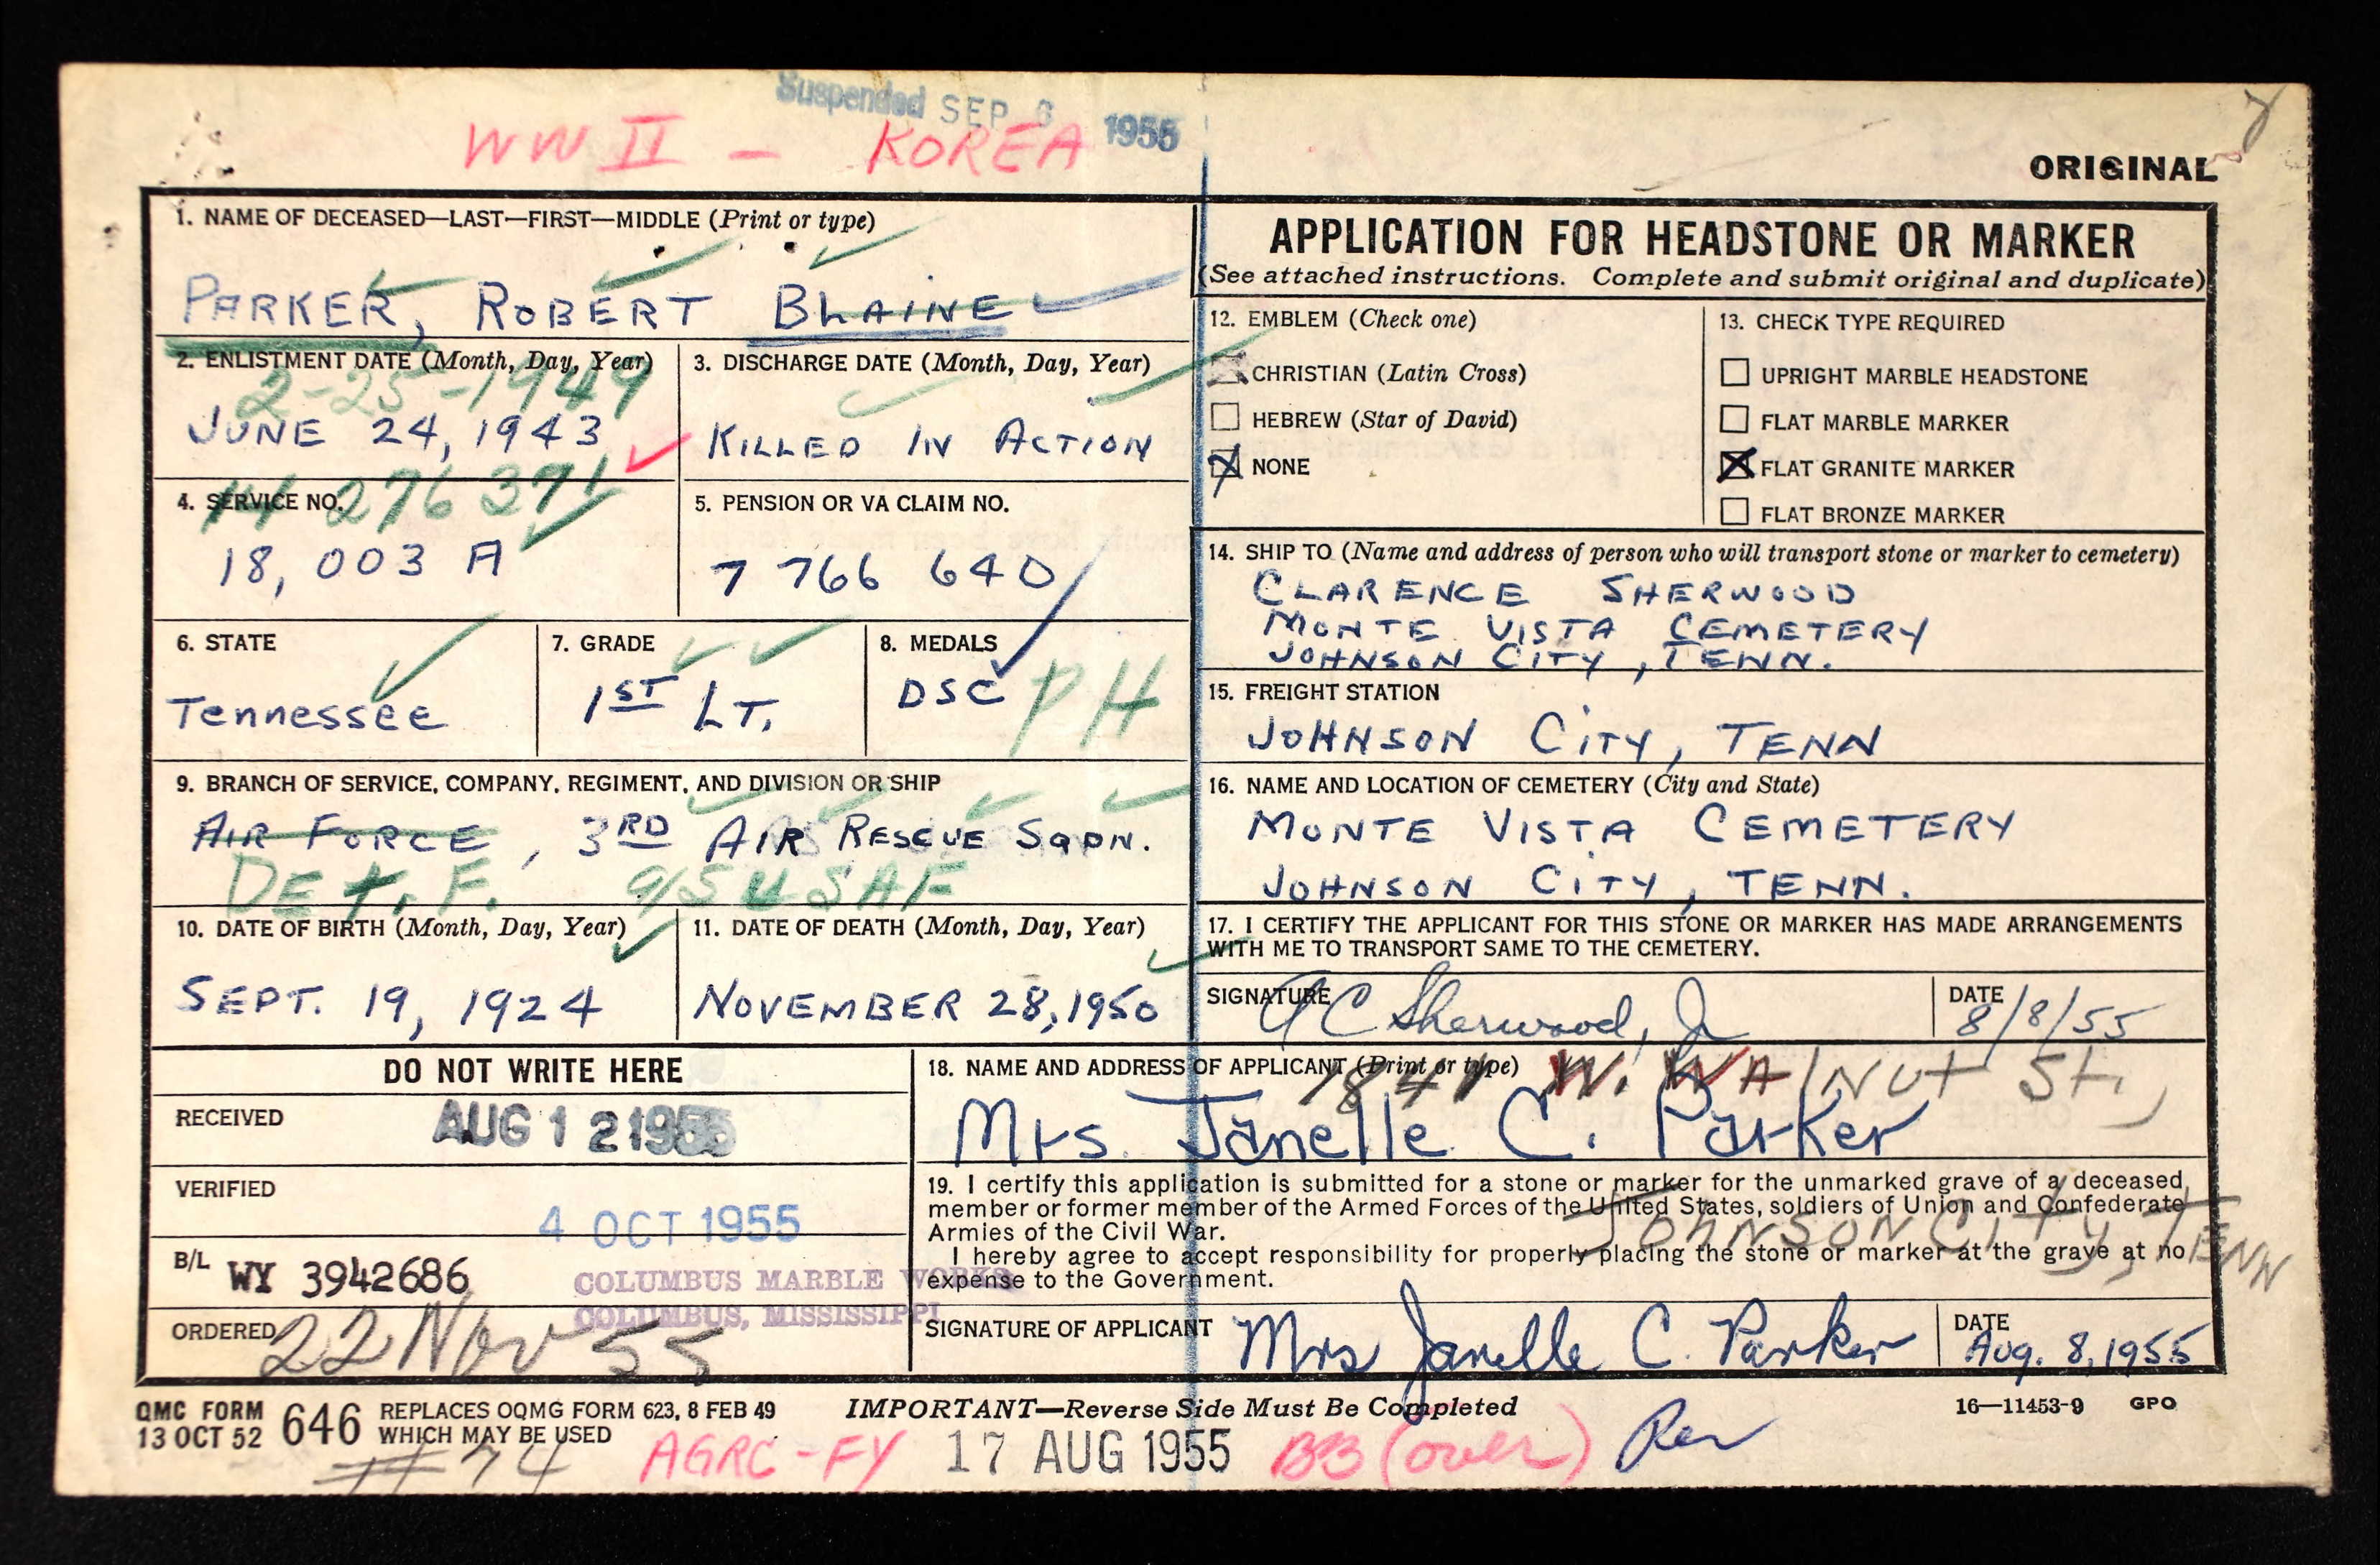 Suspended SEP 6 1955
WW II - KOREA
ORIGINAL
1. NAME OF DECEASED—LAST—FIRST—MIDDLE (Print or type)
PARKER, ROBERT BLAINE
2. ENLISTMENT DATE (Month, Day, Year)
2-25-1949
JUNE 24, 1943
3. DISCHARGE DATE (Month, Day, Year)
KILLED IN ACTION
4. SERVICE NO.
14 276 371
18, 003 A
5. PENSION OR VA CLAIM NO.
7 766 640
6. STATE
Tennessee
7. GRADE
1ST LT.
8. MEDALS
DSC PH
9. BRANCH OF SERVICE, COMPANY, REGIMENT, AND DIVISION OR SHIP
AIR FORCE, 3RD AIR RESCUE SQDN.
DET. F. USAF
10. DATE OF BIRTH (Month, Day, Year)
SEPT. 19, 1924
11. DATE OF DEATH (Month, Day, Year)
NOVEMBER 28, 1950
APPLICATION FOR HEADSTONE OR MARKER
(See attached instructions. Complete and submit original and duplicate)
12. EMBLEM (Check one)
CHRISTIAN (Latin Cross)
HEBREW (Star of David)
NONE
13. CHECK TYPE REQUIRED
UPRIGHT MARBLE HEADSTONE
FLAT MARBLE MARKER
FLAT GRANITE MARKER
FLAT BRONZE MARKER
14. SHIP TO (Name and address of person who will transport stone or marker to cemetery)
CLARENCE SHERWOOD
MONTE VISTA CEMETERY
JOHNSON CITY, TENN.
15. FREIGHT STATION
JOHNSON CITY, TENN
16. NAME AND LOCATION OF CEMETERY (City and State)
MONTE VISTA CEMETERY
JOHNSON CITY, TENN.
17. I CERTIFY THE APPLICANT FOR THIS STONE OR MARKER HAS MADE ARRANGEMENTS
WITH ME TO TRANSPORT SAME TO THE CEMETERY.
SIGNATURE
A C Sherwood, Jr
DATE
8/8/55
DO NOT WRITE HERE
RECEIVED
AUG 12 1955
VERIFIED
4 OCT 1955
B/L WY 3942686
COLUMBUS MARBLE WORKS
COLUMBUS, MISSISSIPPI
ORDERED
22 Nov 55
18. NAME AND ADDRESS OF APPLICANT (Print or type)
1841 W. WAlNut St.,
Mrs. Janelle C. Parker
19. I certify this application is submitted for a stone or marker for the unmarked grave of a deceased
member or former member of the Armed Forces of the United States, soldiers of Union and Confederate
Armies of the Civil War.
JOHNSON CITY, TENN
I hereby agree to accept responsibility for properly placing the stone or marker at the grave at no
expense to the Government.
SIGNATURE OF APPLICANT
Mrs Janelle C. Parker
DATE
Aug. 8, 1955
QMC FORM
13 OCT 52
646
REPLACES OQMG FORM 623, 8 FEB 49
WHICH MAY BE USED
IMPORTANT—Reverse Side Must Be Completed
16—11453-9 GPO
#74
AGRC-FY
17 AUG 1955
BB (over)